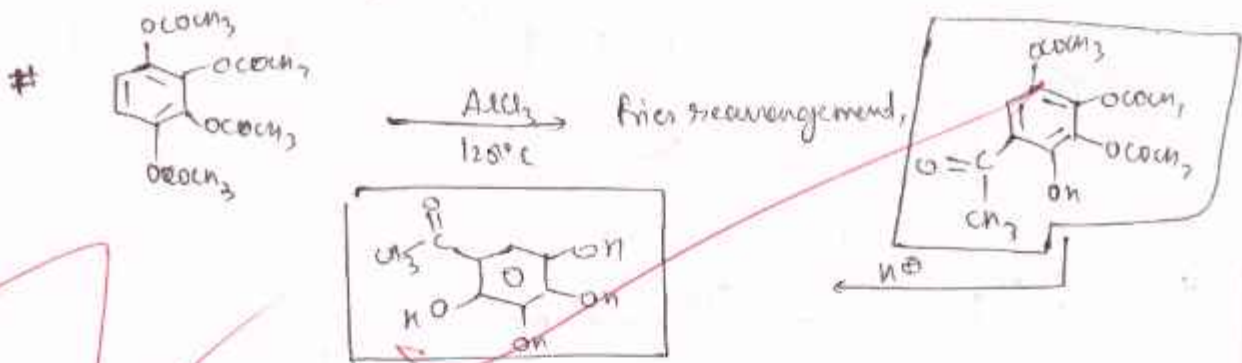 #
OCOCH₃
OCOCH₃
OCOCH₃
OCOCH₃
AlCl₃
120°C
Fries rearrangement,
OCOCH₃
OCOCH₃
OCOCH₃
OH
O=C
CH₃
H⊕
O
CH₃ C
OH
OH
OH
HO